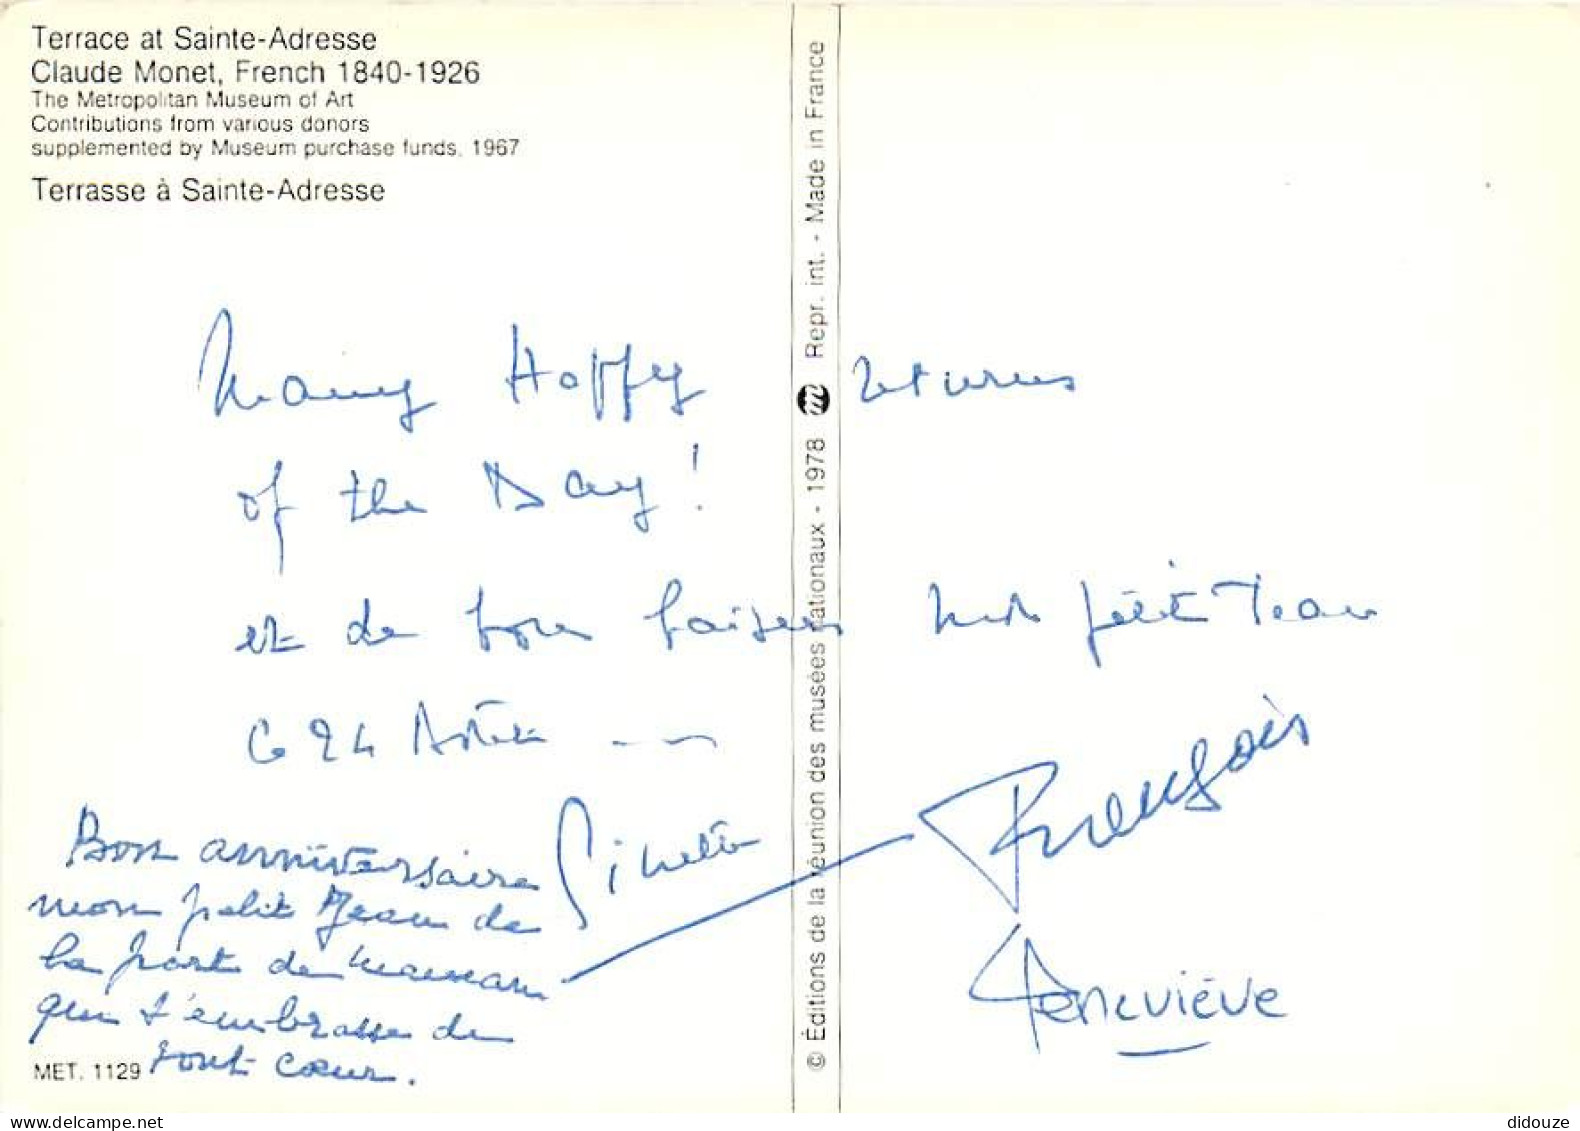 Terrace at Sainte-Adresse
Claude Monet, French 1840-1926
The Metropolitan Museum of Art
Contributions from various donors
supplemented by Museum purchase funds, 1967
Terrasse à Sainte-Adresse
Many Happy returns
of the Day!
et de bons baisers mon petit Jean
Ginette
François
Geneviève
Bon anniversaire
mon petit Jean de
la part de maman
qui t'embrasse de
tout cœur.
MET. 1129
© Éditions de la réunion des musées nationaux - 1978 Repr. int. - Made in France
didouze